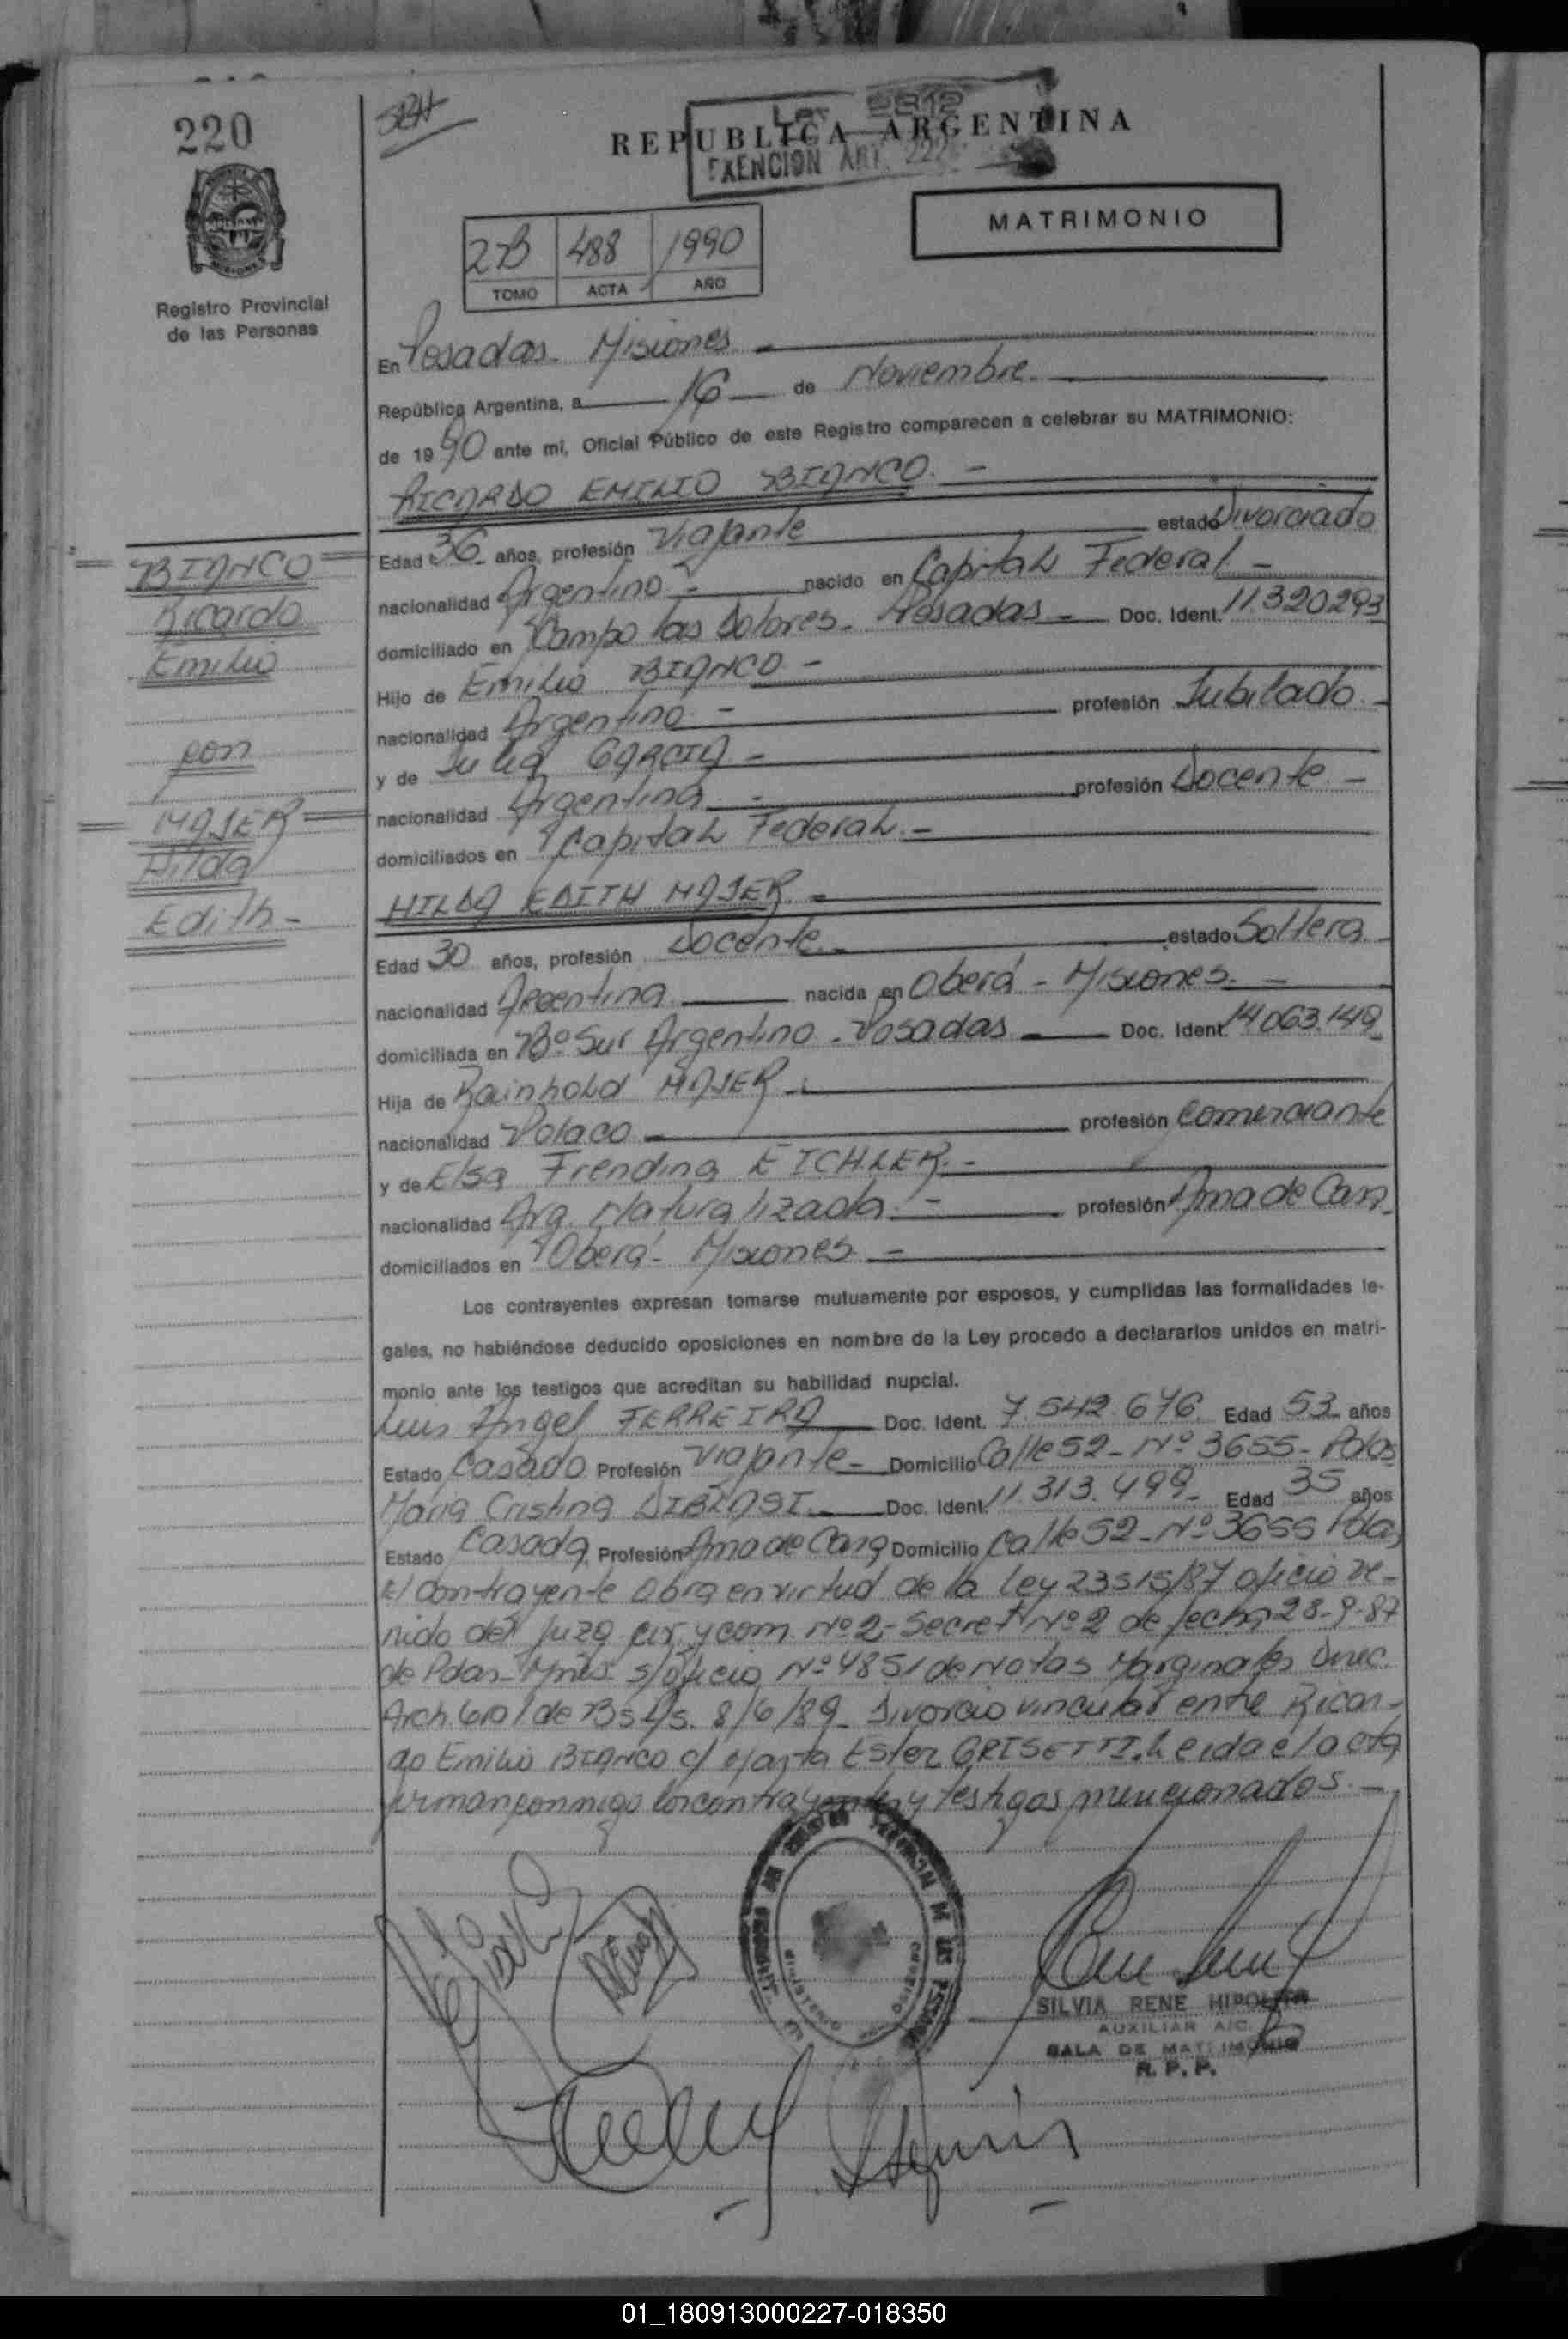 220
Registro Provincial
de las Personas
REPUBLICA ARGENTINA
EXENCION ART. 222
MATRIMONIO
2B 488 1990
TOMO ACTA AÑO
En Posadas - Misiones
República Argentina, a 16 de Noviembre
de 1990 ante mi, Oficial Público de este Registro comparecen a celebrar su MATRIMONIO:
RICARDO EMILIO BIANCO. -
Edad 36 años, profesión Viajante estado Divorciado
nacionalidad Argentino - nacido en Capital Federal -
domiciliado en Campo las Dolores - Posadas - Doc. Ident. 11.320293
Hijo de Emilio BIANCO -
nacionalidad Argentino - profesión Jubilado. -
y de Julia GARCIA -
nacionalidad Argentina - profesión Docente -
domiciliados en Capital Federal. -
HILDA EDITH MAJER -
Edad 30 años, profesión Docente - estado Soltera
nacionalidad Argentina nacida en Oberá - Misiones. -
domiciliada en Bº Sur Argentino - Posadas Doc. Ident. 14063.149
Hija de Rainhold MAJER
nacionalidad Polaco profesión Comerciante
y de Elsa EICHLER. -
nacionalidad Arg. Naturalizada. - profesión Ama de Casa
domiciliados en Oberá - Misiones -
Los contrayentes expresan tomarse mutuamente por esposos, y cumplidas las formalidades le-
gales, no habiéndose deducido oposiciones en nombre de la Ley procedo a declararlos unidos en matri-
monio ante los testigos que acreditan su habilidad nupcial.
Luis Angel FERREIRA Doc. Ident. 7.542.676 Edad 53 años
Estado Casado Profesión Viajante Domicilio Calle 52 - Nº 3655 - Pdas
Maria Cristina DIBIASI Doc. Ident. 11.313.499 Edad 35 años
Estado Casada Profesión Ama de Casa Domicilio Calle 52 - Nº 3655 Pdas
El contrayente obra en virtud de la Ley 23515/87 oficio ve-
nido del Juzg Civ. y com. Nº 2 - Secret Nº 2 de fecha 28-9-87
de Pdas - Mnes. s/oficio Nº 4851 de Notas Marginales Direc.
Arch. Gral de Bs As. 8/6/89 - Divorcio vincular entre Ricar-
do Emilio BIANCO c/ Marta Ester GRISETTI. Leida el acta
firman conmigo los contrayentes y testigos mencionados. -
BIANCO
Ricardo
Emilio
con
MAJER
Hilda
Edith -
SILVIA RENE HIPOLITO
AUXILIAR A/C.
SALA DE MATRIMONIO
R. P. P.
01_180913000227-018350